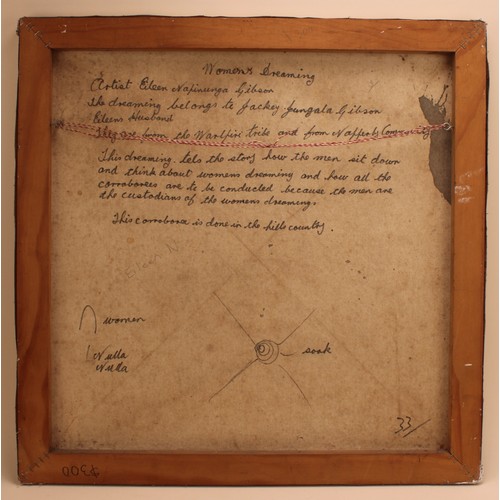 Women's Dreaming
Artist Eileen Napinunga Gibson
The dreaming belongs to Jackey Jungala Gibson
Eileens Husband
They are from the Warlpiri tribe and from Napperby Community
This dreaming tells the story how the men sit down
and think about womens dreaming and how all the
corroborees are to be conducted because the men are
the custodians of the womens dreaming.
This corroboree is done in the hills country.
Eileen N
women
soak
Nulla
Nulla
33/
$300